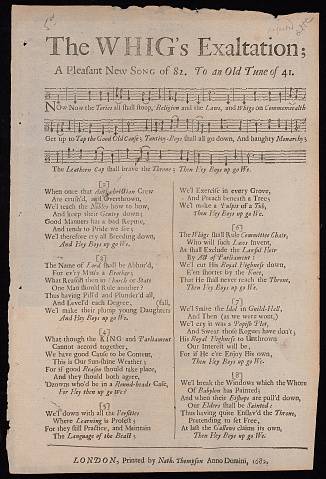 The WHIG's Exaltation;
A Pleasant New SONG of 82. To an Old Tune of 41.
NOw Now the Tories all shall stoop, Religion and the Laws, and Whigs on Commonwealth
Get up to Tap the Good Old Cause; Tantivy-Boys shall all go down, And haughty Monarchy;
The Leathern Cap shall brave the Throne; Then Hey Boys up go We.
[2]
When once that Antichristian Crew
Are crush'd, and Overthrown,
We'l teach the Nobles how to bow,
And keep their Gentry down;
Good Manners has a bad Repute,
And tends to Pride we see;
We'l therefore cry all Breeding down,
And Hey Boys up go We.
[3]
The Name of Lord shall be Abhorr'd,
For ev'ry Man's a Brother;
What Reason then in Church or State
One Man should Rule another?
Thus having Pill'd and Plunder'd all,
And Levell'd each Degree, (fall,
We'l make their plump young Daughters
And Hey Boys up go We.
[4]
What though the KING and Parliament
Cannot accord together,
We have good Cause to be Content,
This is Our Sun-shine Weather;
For if good Reason should take place,
And they should both agree,
D'zowns who'd be in a Round-heads Case,
For Hey then up go We!
[5]
We'l down with all the Versities
Where Learning is Profest;
For they still Practice, and Maintain
The Language of the Beast;
We'l Exercise in every Grove,
And Preach beneath a Tree;
We'l make a Pulpit of a Tub,
Then Hey Boys up go We.
[6]
The Whigs shall Rule Committee Chair,
Who will such Laws Invent,
As shall Exclude the Lawful Heir
By Act of Parliament:
We'l cut His Royal Highness down,
E'en shorter by the Knee,
That He shall never reach the Throne,
Then Hey Boys up go We.
[7]
We'l Smite the Idol in Guild-Hall,
And Then (as we were wont,)
We'l cry it was a Popish Plot,
And Swear those Rogues have don't;
His Royal Highness to Unthrown
Our Interest will be,
For if He e're Enjoy His Own,
Then Hey Boys up go We.
[8]
We'l break the Windows which the Whore
Of Babylon has Painted;
And when their Bishops are pull'd down,
Our Elders shall be Sainted:
Thus having quite Enslav'd the Throne,
Pretending to set Free,
At last the Gallows claims its own,
Then Hey Boys up go We.
LONDON, Printed by Nath. Thompson Anno Domini, 1682.